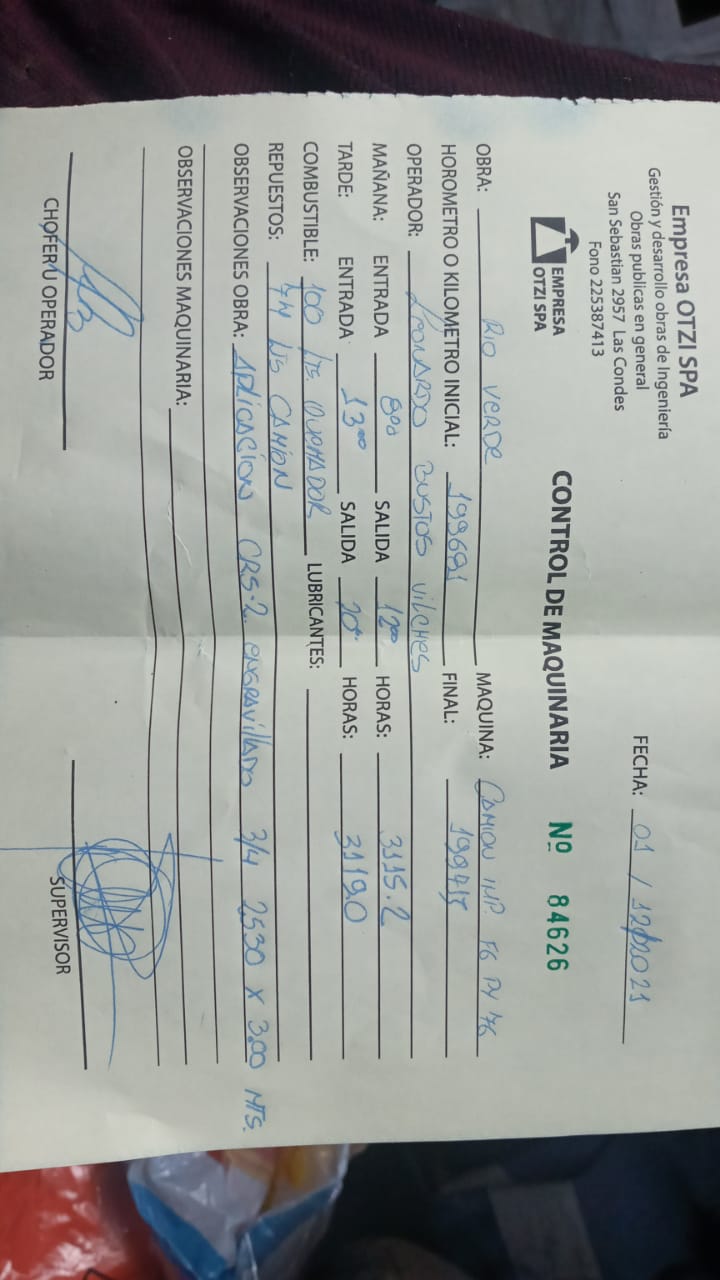 Empresa OTZI SPA
Gestión y desarrollo obras de Ingeniería
Obras publicas en general
San Sebastian 2957 Las Condes
Fono 225387413
FECHA: 01 / 12/2021
EMPRESA
OTZI SPA
CONTROL DE MAQUINARIA Nº 84626
OBRA: RIO VERDE MAQUINA: CAMION IMP. FG PY 76
HOROMETRO O KILOMETRO INICIAL: 199681 FINAL: 199713
OPERADOR: LEONARDO BUSTOS VILCHES
MAÑANA: ENTRADA 8⁰⁰ SALIDA 12⁰⁰ HORAS: 3115.2
TARDE: ENTRADA 13⁰⁰ SALIDA 20⁰⁰ HORAS: 3119.0
COMBUSTIBLE: 100 LTS. QUEMADOR LUBRICANTES:
REPUESTOS: 74 LTS CAMION
OBSERVACIONES OBRA: APLICACION CRS-2 ENGRAVILLADO 3/4 2530 X 3.00 MTS.
OBSERVACIONES MAQUINARIA:
CHOFER U OPERADOR
SUPERVISOR